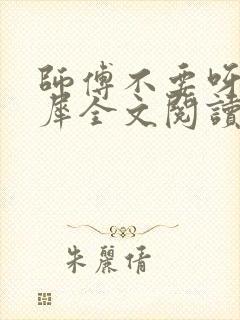 師傅不要呀
犀全文閱讀
朱麗倩